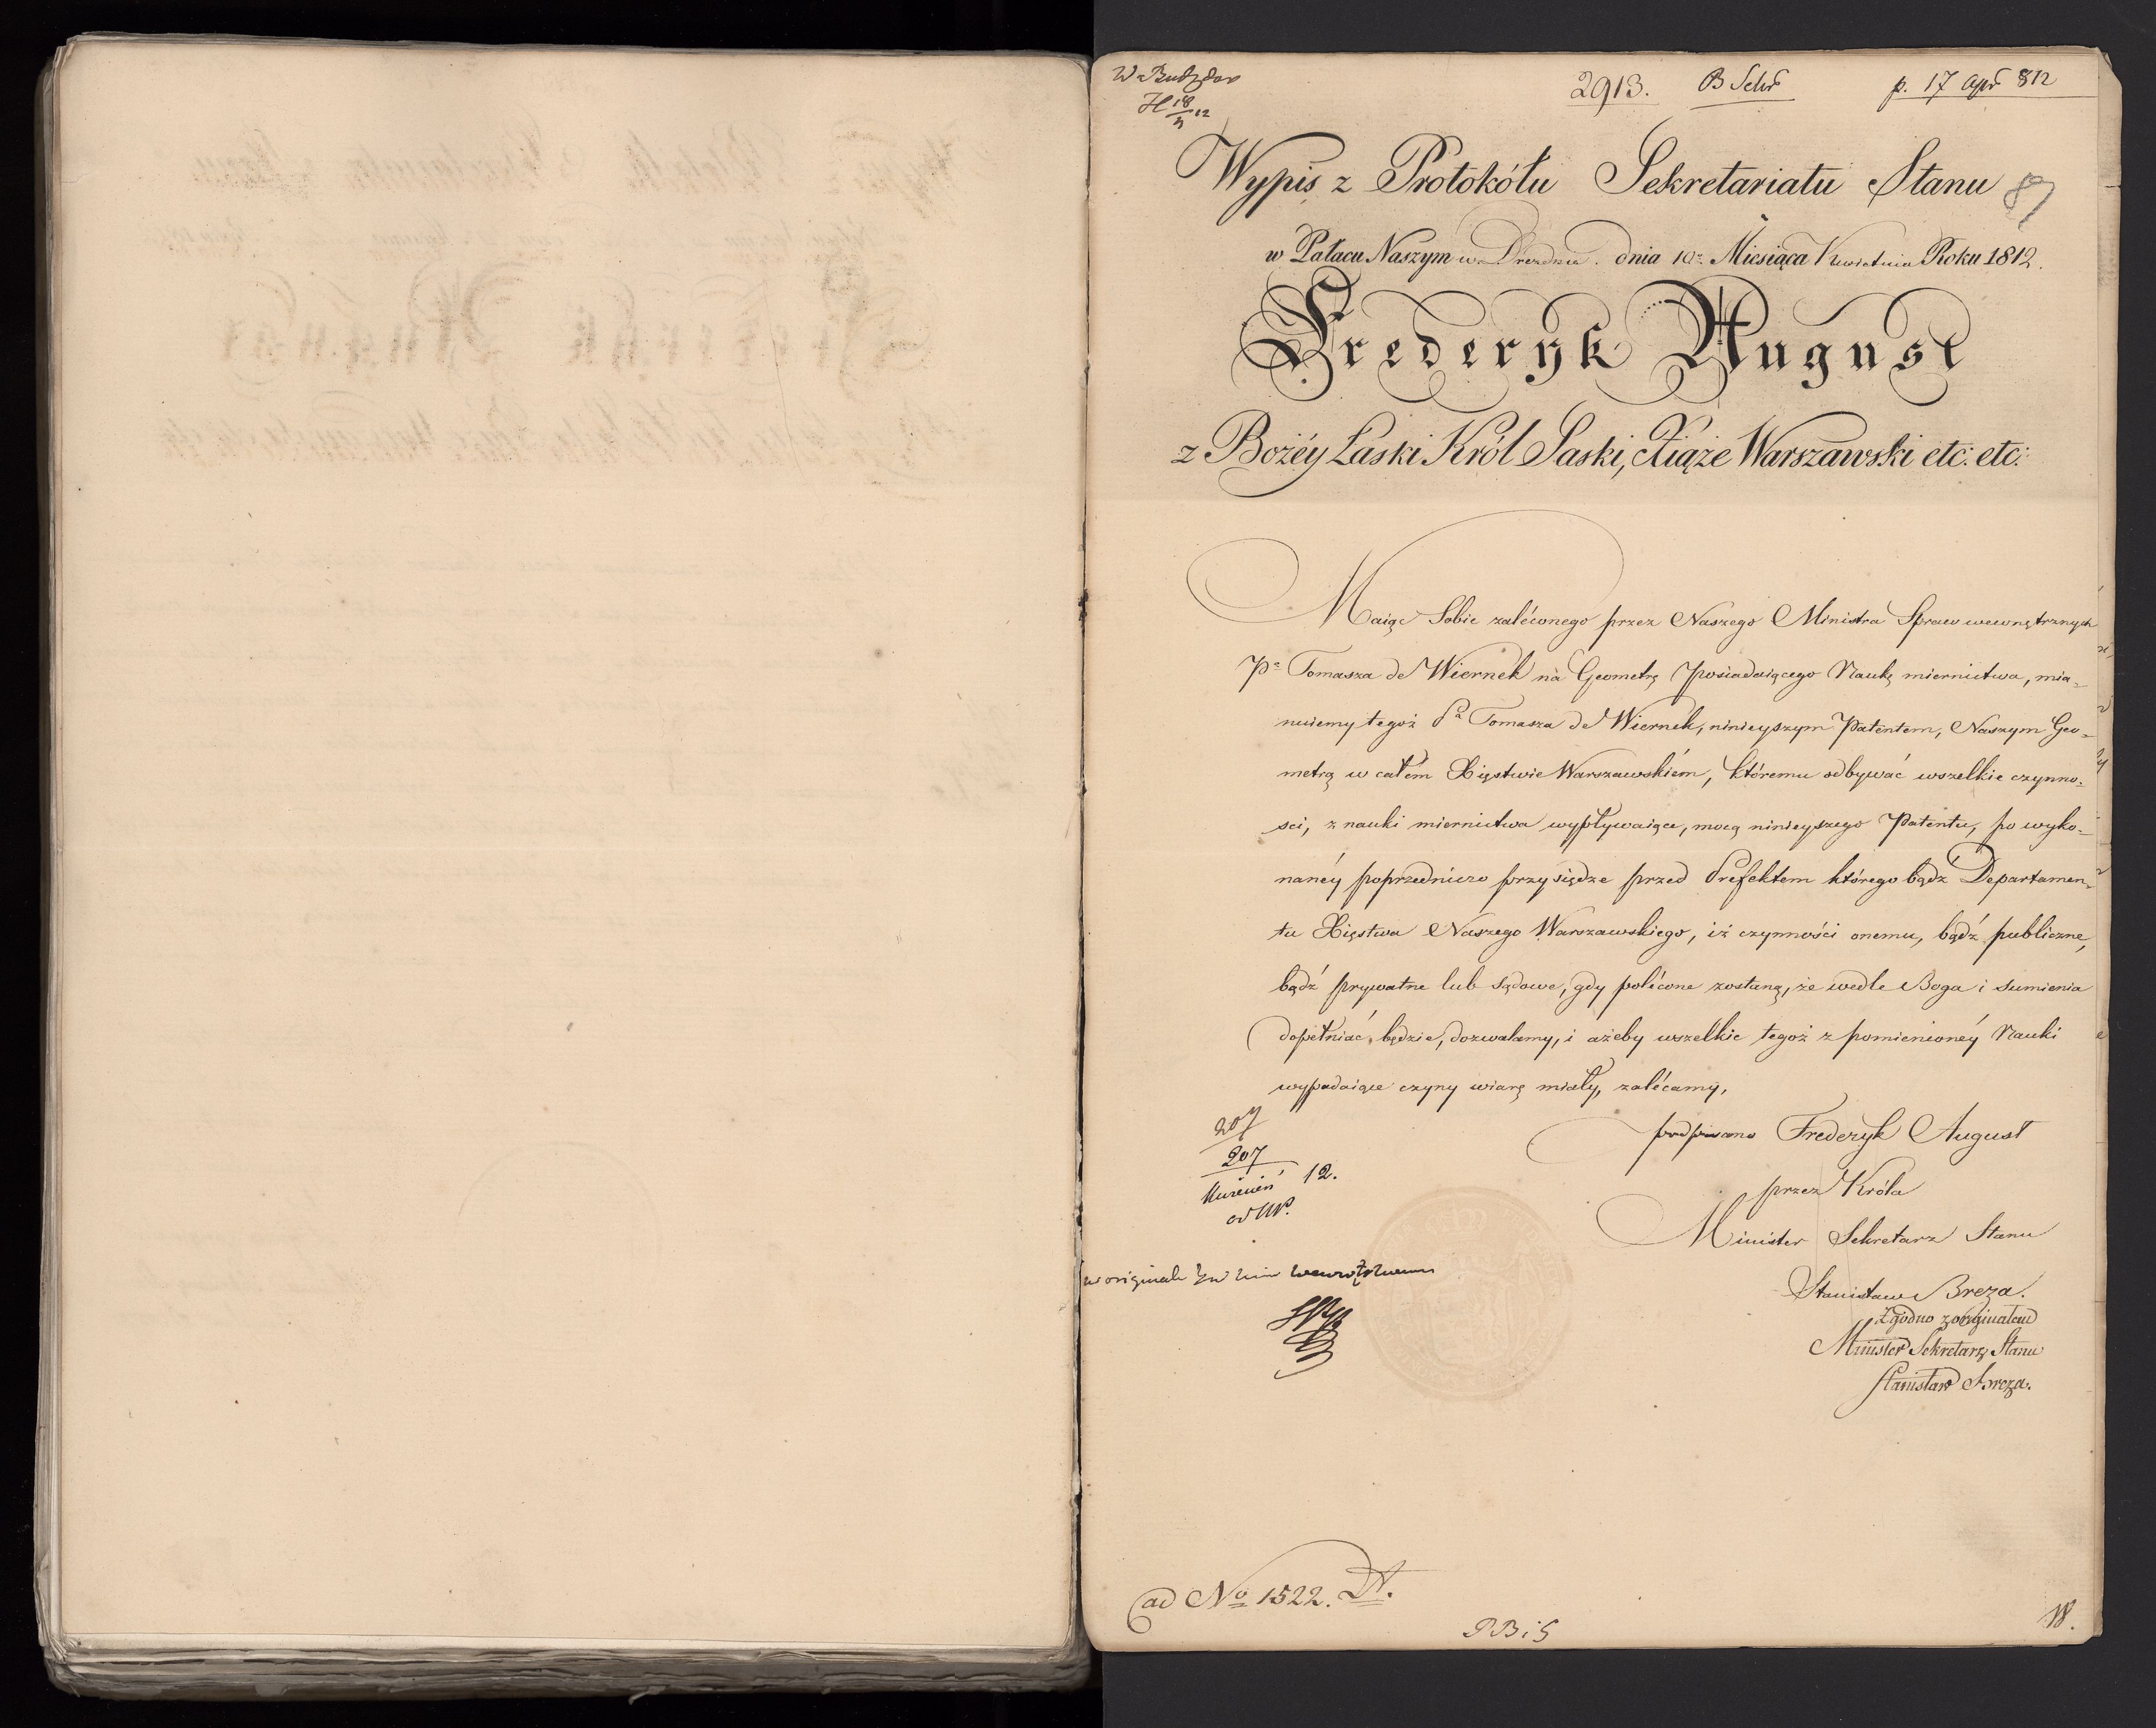 2913. p. 17 Apr 812
Wypis z Protokółu Sekretariatu Stanu
87
w Pałacu Naszym w Dreznie. dnia 10. Miesiąca Kwietnia Roku 1812.
Frederyk August
z Bożéy Łaski Król Saski, Xiąże Warszawski etc: etc:
Maiąc Sobie zaléconego przez Naszego Ministra Spraw wewnętrznych
Pa Tomasza de Wiernek na Geometrę posiadaiącego Naukę miernictwa, mia-
nuiemy tegoż Pa Tomasza de Wiernek, ninieyszym Patentem, Naszym Geo-
metrą w całém Xięstwie Warszawskiém, któremu odbywać wszelkie czynno-
sci, z nauki miernictwa wypływaiące, mocą ninieyszego Patentu, po wyko-
nanéy poprzedniczo przysiędze przed Prefektem którego bądź Departamen-
tu Xięstwa Naszego Warszawskiego, iż czynności onemu, bądź publiczne,
bądź prywatne lub sądowe, gdy polécone zostaną, że wedle Boga i sumienia
dopełniać będzie, dozwalamy, i ażeby wszelkie tegoż z pomienionéy Nauki
wypadaiące czyny wiarę miały, zalécamy,
podpisano Frederyk August
przez Króla
Minister Sekretarz Stanu
Stanisław Breza.
Zgodno z oryginałem
Minister Sekretarz Stanu
Stanisław Breza.
207
207
12.
w originale
ad No 1522.